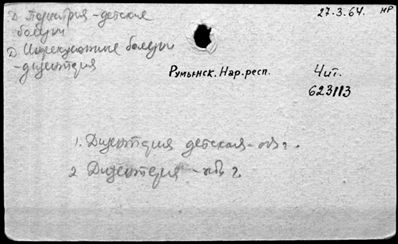 Д. Педиатрия - детская
болезни
Д. Инфекционные болезни
- дизентерия
27.3.64. НР
Румынск. Нар. респ.
Чит.
623113
1. Дизентерия детская
2 Дизентерия